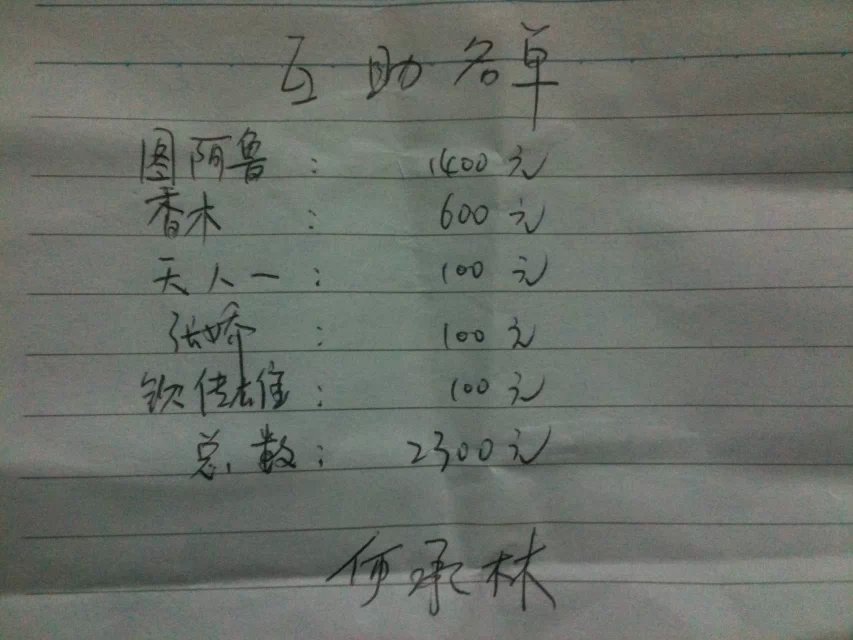 互助名单
图阿鲁：1400元
香木：600元
天人一：100元
张娇：100元
钦佳雄：100元
总数：2300元
何承林